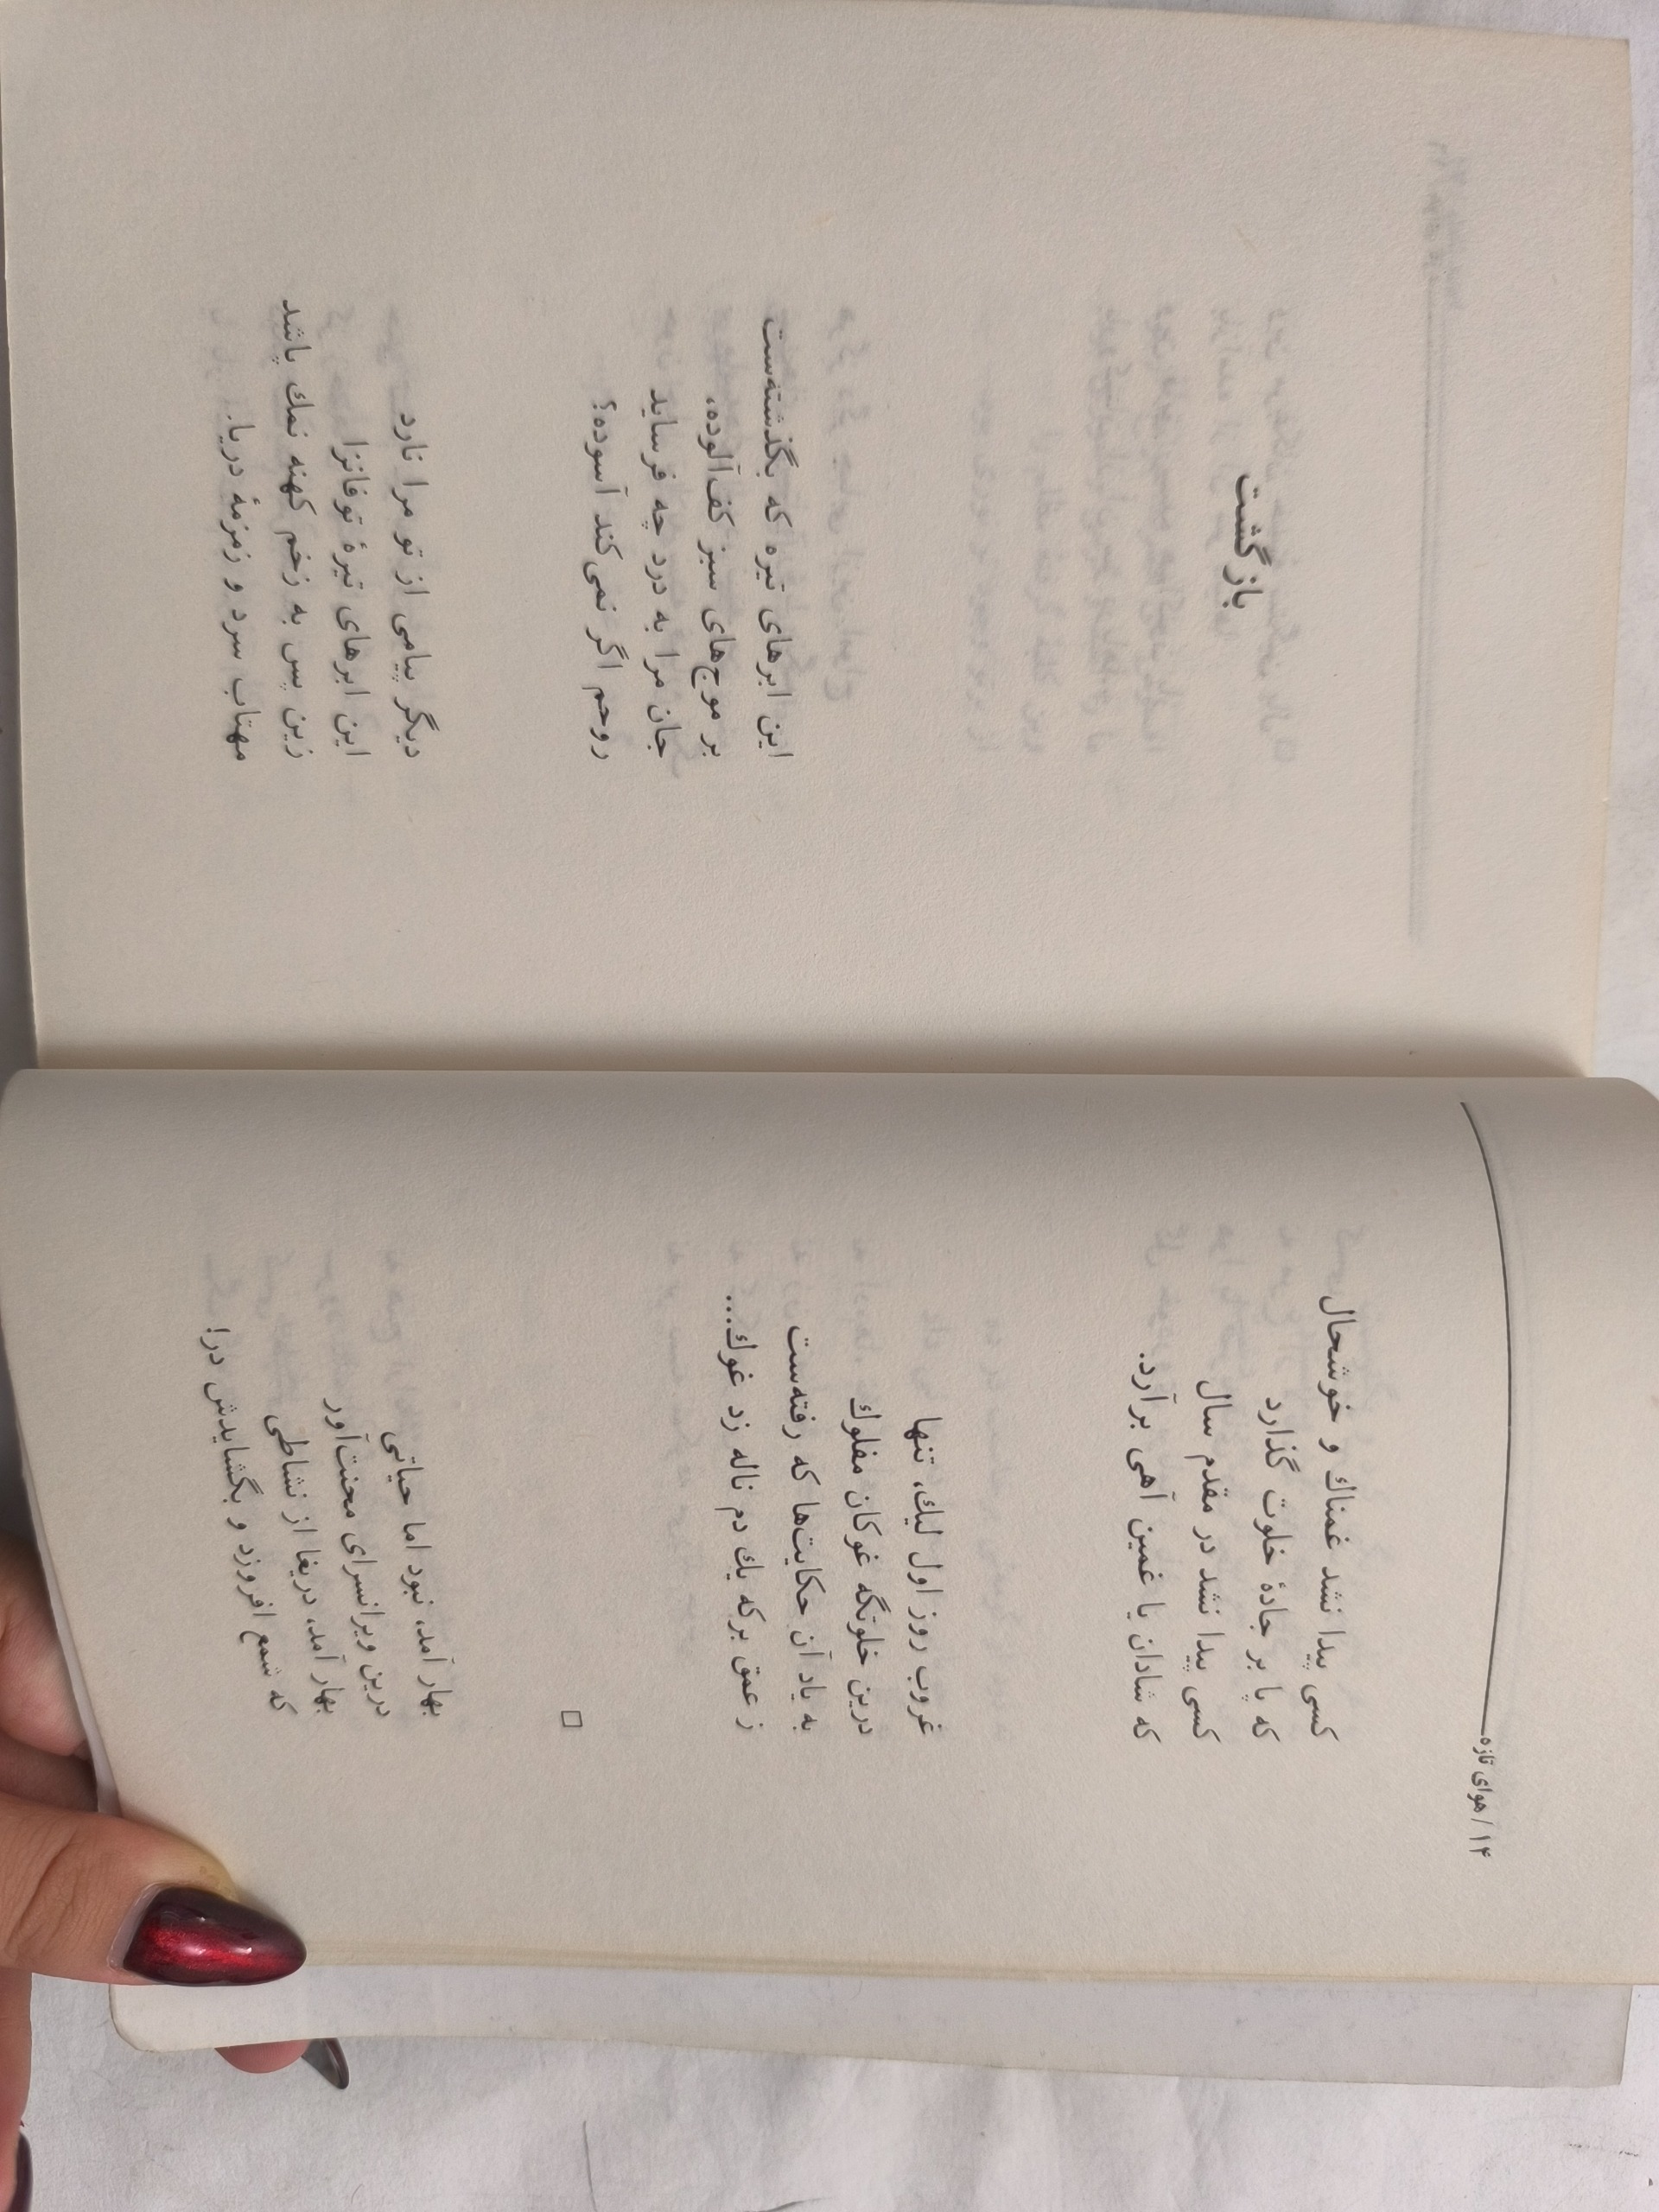 ۱۴ / هوای تازه
کسی پیدا نشد غمناك و خوشحال
که پا بر جادهٔ خلوت گذارد
کسی پیدا نشد در مقدم سال
که شادان یا غمین آهی برآرد.
غروب روز اول لیك، تنها
درین خلوتگه غوکان مفلوك
به یاد آن حکایت‌ها که رفته‌ست
ز عمق برکه یك دم ناله زد غوك...
□
بهار آمد، نبود اما حیاتی
درین ویرانسرای محنت‌آور
بهار آمد، دریغا از نشاطی
که شمع افروزد و بگشایدش در!
بازگشت
این ابرهای تیره که بگذشته‌ست
بر موج‌های سبز کف‌آلوده،
جان مرا به درد چه فرساید
روحم اگر نمی‌کند آسوده؟
دیگر پیامی از تو مرا نارد
این ابرهای تیرهٔ توفانزا
زین پس به زخم کهنه نمك پاشد
مهتاب سرد و زمزمهٔ دریا.